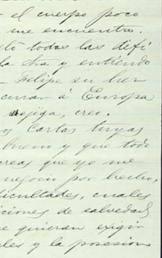 el cuerpo poco
me encuentro
todas las difi
dia y entiendo
Felipe su her
á Europa
creo.
cartas tuyas
y que todo
creas que yo me
negocio por hecho,
dificultades, cuales
ciones de salvedad
se quieran exigir
les y la posesion